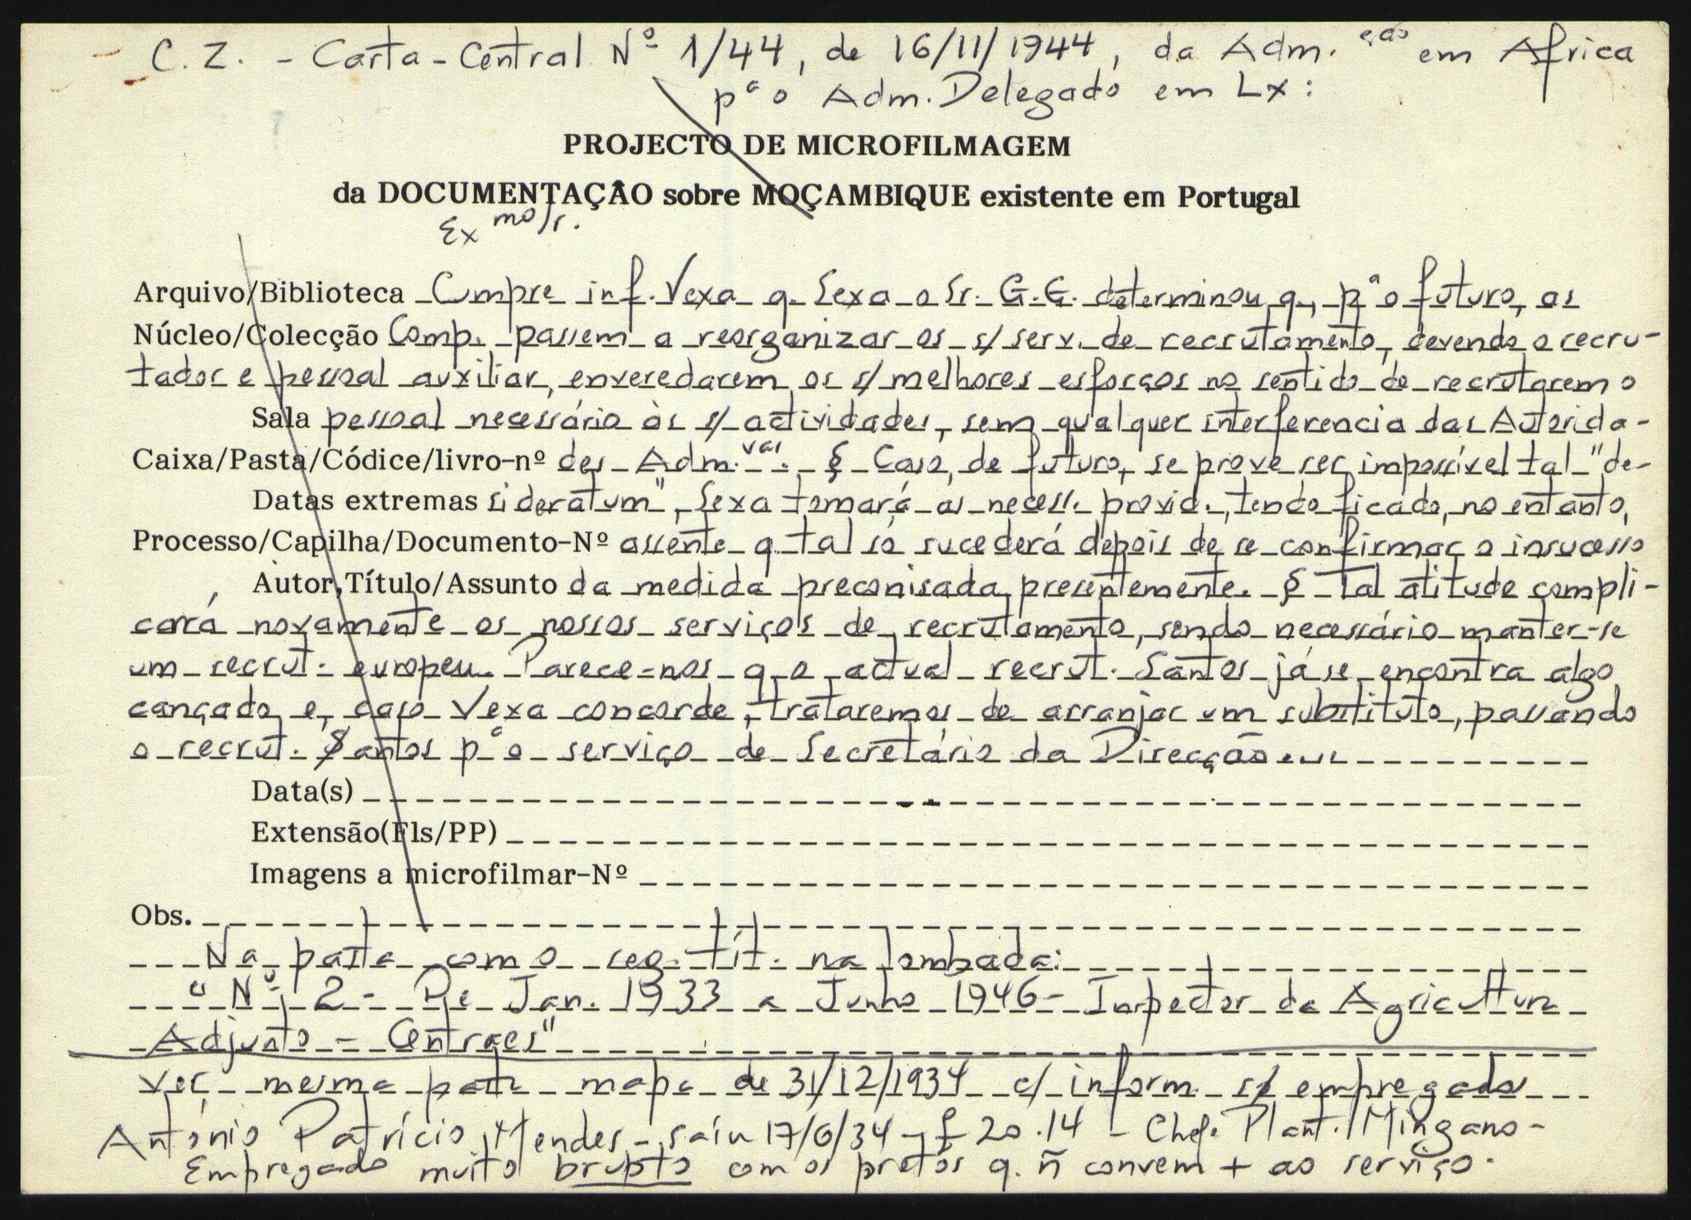 C. Z. - Carta-Central Nº 1/44, de 16/11/1944, da Adm.ção em Africa
pª o Adm. Delegado em Lx:
PROJECTO DE MICROFILMAGEM
da DOCUMENTAÇÃO sobre MOÇAMBIQUE existente em Portugal
Exmo Sr.
Arquivo/Biblioteca Cumpre inf. Vexa q. Sexa o Sr. G.G. determinou q, pª o futuro, as
Núcleo/Colecção Comp. passem a reorganizar os s/ serv. de recrutamento, devendo o recru-
tador e pessoal auxiliar, enveredarem os s/ melhores esforços no sentido de recrutarem o
Sala pessoal necessário às s/ actividades, sem qualquer interferencia das Autorida-
Caixa/Pasta/Códice/livro-nº des Adm.vas. § Caso, de futuro, se prove ser impossível tal "de-
Datas extremas sideratum", Sexa tomará as necess. provid., tendo ficado, no entanto,
Processo/Capilha/Documento-Nº assente q. tal só sucederá depois de se confirmar o insucesso
Autor,Título/Assunto da medida preconisada presentemente. § Tal atitude compli-
cará novamente os nossos serviços de recrutamento, sendo necessário manter-se
um recrut. europeu. Parece-nos q. o actual recrut. Santos já se encontra algo
cançado e, caso Vexa concorde, trataremos de arranjar um substituto, passando
o recrut. Santos pª o serviço de Secretário da Direcção
Data(s)
Extensão(Fls/PP)
Imagens a microfilmar-Nº
Obs.
Na pasta com o seg. tít. na lombada:
"Nº 2 - De Jan. 1933 a Junho 1946 - Inspector de Agricultura
Adjunto - Centraes"
Ver, mesma pasta mapa de 31/12/1934 c/ inform. s/ empregados
António Patrício Mendes - saíu 17/6/34 - £ 20.14 - Chefe Plant. Mingano -
Empregado muito brupto com os pretos q. ñ convem + ao serviço.